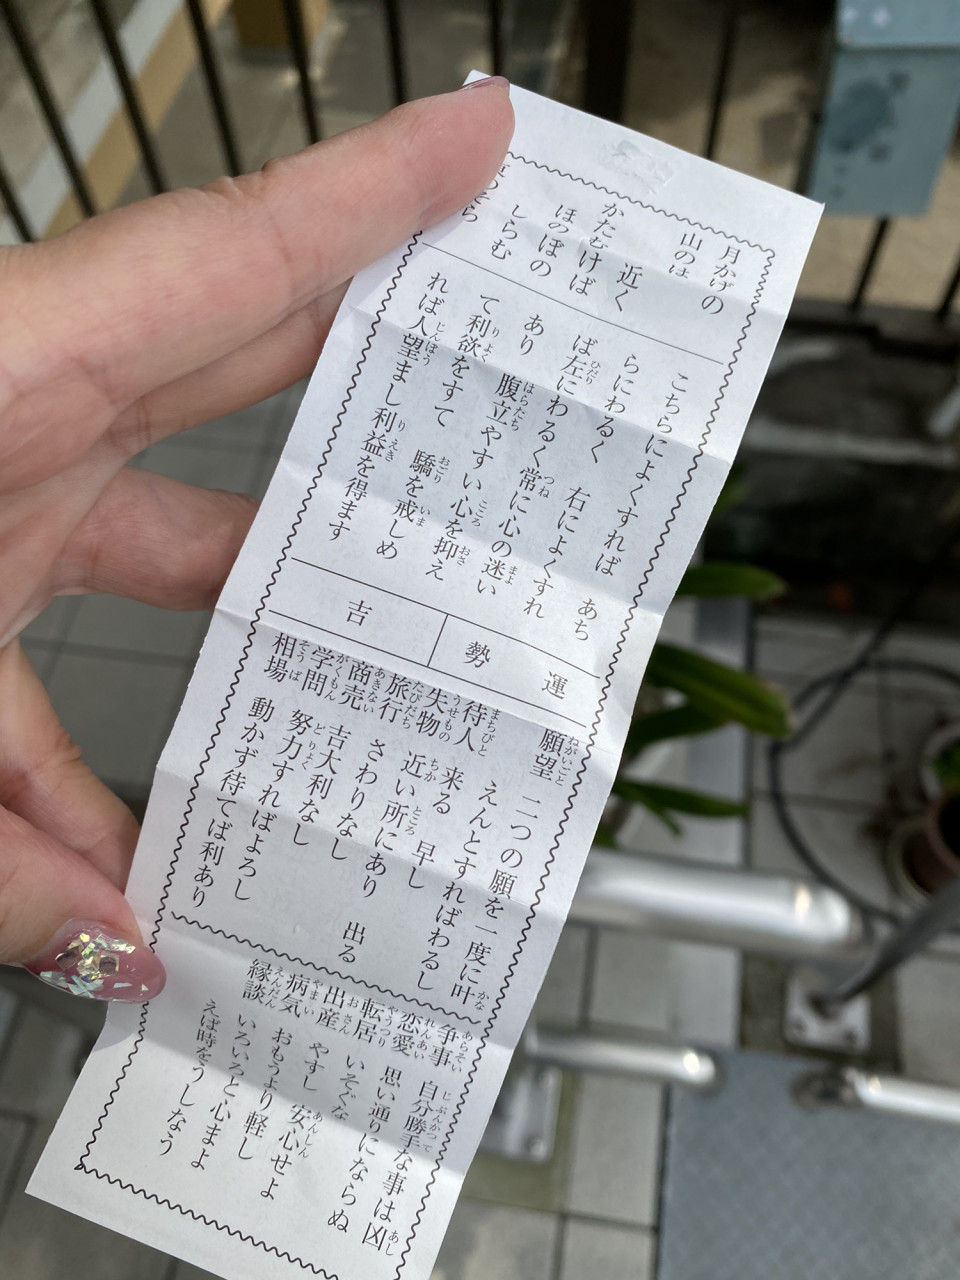 月かげの
山のは
近く
かたむけば
ほのぼの
しらむ
そら
こちらによくすれば あち
らにわるく 右によくすれ
ば左にわるく常に心の迷い
あり 腹立やすい心を抑え
て利欲をすて 驕を戒しめ
れば人望まし利益を得ます
運勢
吉
願望 二つの願を一度に叶
えんとすればわるし
待人 来る 早し
失物 近い所にあり 出る
旅行 さわりなし
商売 吉大利なし
学問 努力すればよろし
相場 動かず待てば利あり
争事 自分勝手な事は凶
恋愛 思い通りにならぬ
転居 いそぐな
出産 やすし 安心せよ
病気 おもうより軽し
縁談 いろいろと心まよ
えば時をうしなう